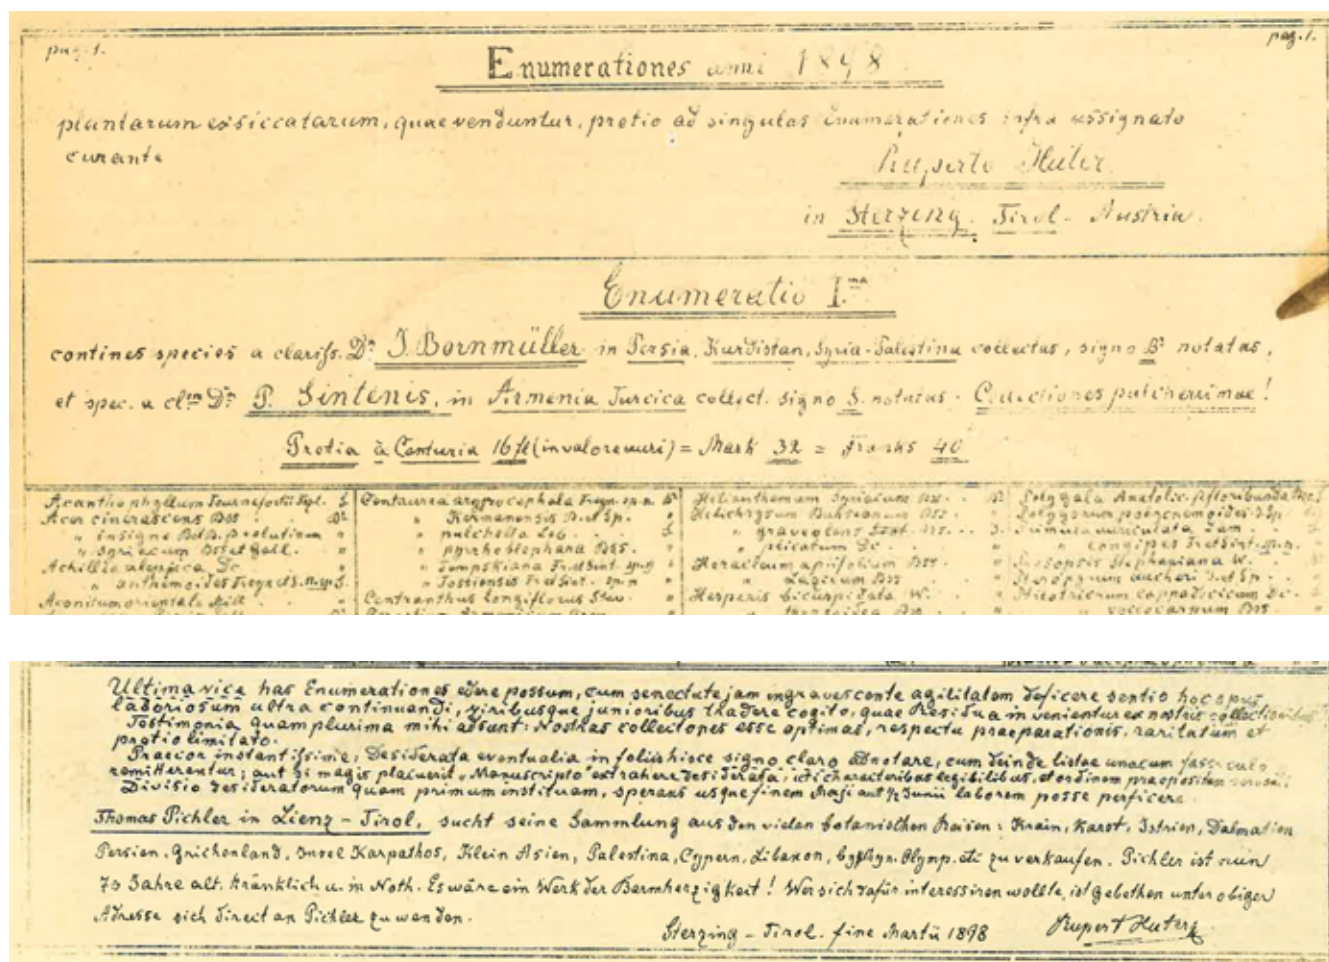 pag. 1. pag. 1.
Enumerationes anni 1898
plantarum exsiccatarum, quae venduntur, pretio ad singulas Enumerationes infra assignato
curante
Ruperto Huter
in Sterzing. Tirol. Austria.
Enumeratio I.ma
contines species a clariss. Dre J. Bornmüller in Persia, Kurdistan, Syria-Palestina collectas, signo B. notatas,
et spec. a cl. D. P. Sintenis, in Armenia Turcica collect. signo S. notatas. Collectiones pulcherrimae!
Pretia à Centuria 16 fl (in valore = Mark 32 = Franks 40
Acantho phyllum Tournefortii
Acer cinerascens Bss
" insigne
" syriacum Bss et Gail.
Achillea aleppica Dc
" anthemoides
Aconitum orientale Mill
Centaurea argyrocephala Freyn. sp. n.
" Kermanensis B. et Sp.
" pulchella Led.
" pyrrhoblephara Bss.
" Tempskiana Fr. et Sint. sp. n
" Tossiensis Fr. et Sint. sp. n
Centranthus longiflorus Stev.
Helianthemum Syriacum
Helichrysum Buhseanum Bss
" graveolens Bss.
" plicatum Dc
Heracleum apiifolium Bss
" Lazicum Bss
Hesperis bicuspidata W.
Polygala Anatolic.
Polygonum polycnemoides J. Sp.
Primula auriculata Lam.
" longipes Fr et Sint. sp. n.
Prosopis Stephaniana W.
Pteropyrum aucheri J. et Sp.
Ptilotrichum cappadocicum
Ultima vice has Enumerationes edere possum, cum senectute jam ingravescente agilitatem deficere sentio hoc opus
laboriosum ultra continuandi, viribusque junioribus tradere cogito, quae Residua in venientur ex nostris collectionibus
Testimonia quam plurima mihi adsunt: Nostras collectones esse optimas, respectu praeparationis, raritatum et
pretio limitato.
Praecor instantissime, Desiderata eventualia in foliis hisce signo claro adnotare, cum deinde listae unacum fasciculo
remitterentur; aut si magis placuerit, Manuscripto extrahere desiderata, id characteribus legibilibus, et ordinem praepositum
Divisio desideratorum quam primum instituam, sperans usque finem Maji aut ½ Junii laborem posse perficere.
Thomas Pichler in Lienz - Tirol, sucht seine Sammlung aus den vielen botanischen Reisen: Krain, Karst, Istrien, Dalmatien
Persien, Grichenland, Insel Karpathos, Klein Asien, Palestina, Cypern, Libanon, Olymp. etc zu verkaufen. Pichler ist nun
73 Jahre alt. kränklich u. in Noth. Es wäre ein Werk der Barmherzigkeit! Wer sich dafür interessiren wollte, ist gebethen unter obiger
Adresse sich direct an Pichler zu wenden.
Sterzing - Tirol. fine Martii 1898 Rupert Huter